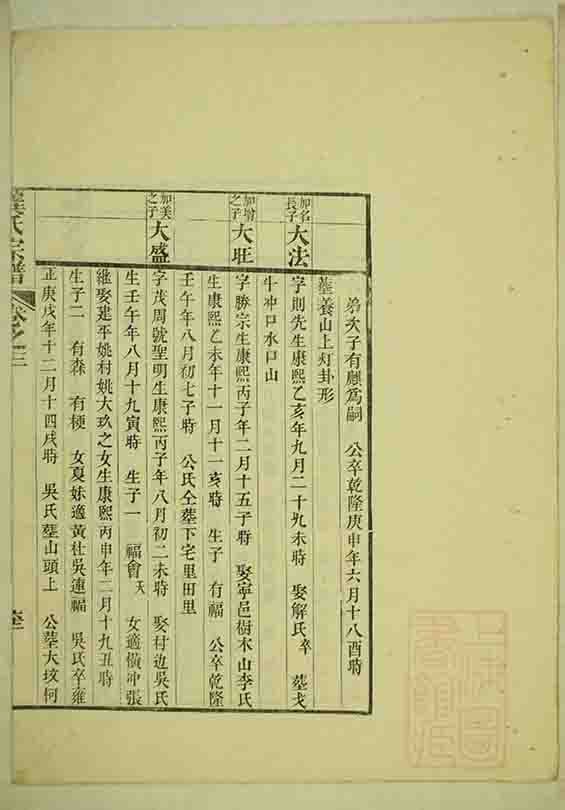 弟次子有麒為嗣　公卒乾隆庚申年六月十八酉時
葬養山上灯卦形
加名長子　大法　字則先生康熙乙亥年九月二十九未時　娶解氏卒　葬戈
牛冲口水口山
加增之子　大旺　字勝宗生康熙丙子年二月十五子時　娶寧邑樹木山李氏
生康熙乙未年十一月十一亥時　生子　有福　公卒乾隆
壬午年八月初七子時　公氏仝葬下宅里田里
加美之子　大盛　字茂周號聖明生康熙丙子年八月初二未時　娶村边吳氏
生壬午年八月十九寅時　生子一　福會夭　女適橫冲張
継娶建平姚村姚大玖之女生康熙丙申年二月十九丑時
生子二　有森　有梗　女夏妹適黃杜吳連福　吳氏卒雍
正庚戌年十二月十四戌時　吳氏葬山頭上　公葬大坟何
氏宗譜　卷之三
上海圖書館